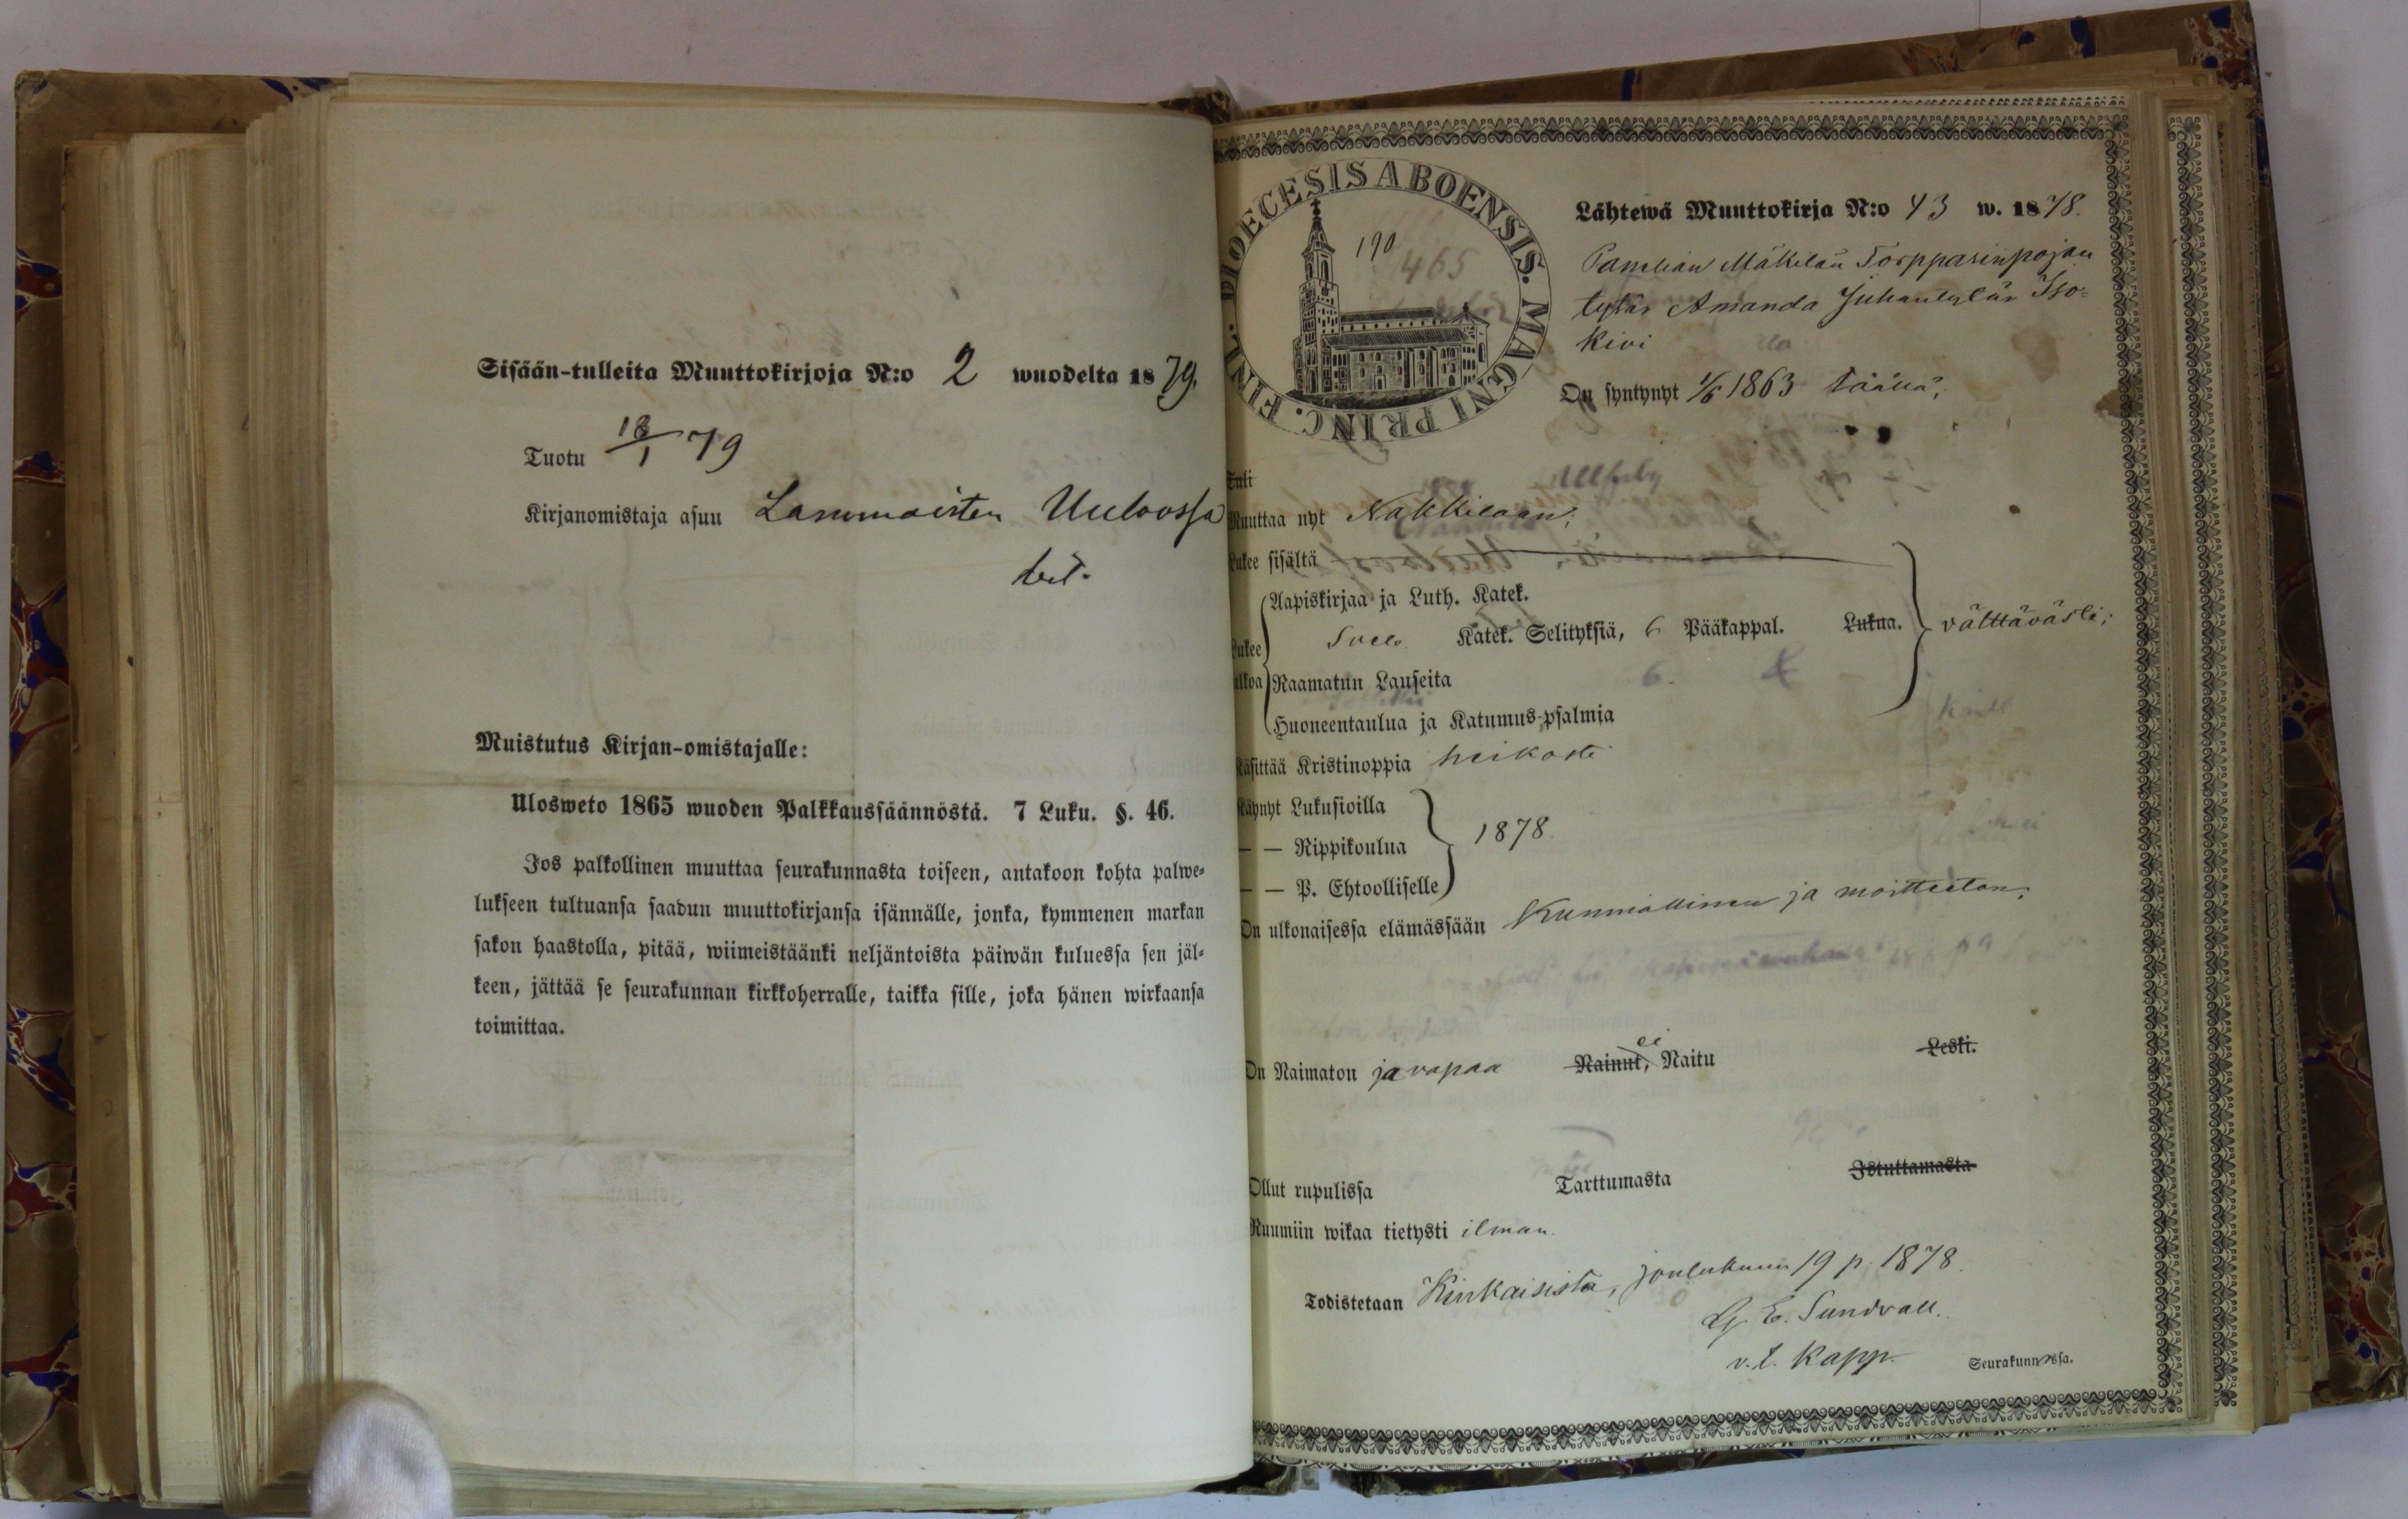 Sisään-tulleita Muuttokirjoja N:o 2 wuodelta 1879.
Tuotu 18/1 79
Kirjanomistaja asuu Lammaisten Uuloossa
Muistutus Kirjan-omistajalle:
Ulosweto 1865 wuoden Palkkaussäännöstä. 7 Luku. §. 46.
Jos palkollinen muuttaa seurakunnasta toiseen, antakoon kohta palwe=
lukseen tultuansa saadun muuttokirjansa isännälle, jonka, kymmenen markan
sakon haastolla, pitää, wiimeistäänki neljäntoista päiwän kuluessa sen jäl=
keen, jättää se seurakunnan kirkkoherralle, taikka sille, joka hänen wirkaansa
toimittaa.
FINL. DIOECESIS ABOENSIS. MAGNI PRINC.
190
465
Lähtewä Muuttokirja N:o 43 w. 1878.
Mäkilän Torpparinpojan
tytär Amanda Juhantytär Iso=
kivi
On syntynyt 1/6 1863 täällä;
Tuli
Muuttaa nyt Nakkilaan;
Lukee sisältä
Aapiskirjaa ja Luth. Katek.
Lukee Svel. Katek. Selityksiä, 6 Pääkappal. Lukua. välttävästi;
ulkoa Raamatun Lauseita
Huoneentaulua ja Katumus-psalmia
Käsittää Kristinoppia heikosti
Käynyt Lukusioilla
— — Rippikoulua 1878.
— — P. Ehtoolliselle
On ulkonaisessa elämässään Kunniallinen ja moitteeton;
On Naimaton ja vapaa Nainut, ei Naitu Leski.
Ollut rupulissa Tarttumasta Istuttamasta
Ruumiin wikaa tietysti ilman.
Todistetaan Kiukaisista, joulukuun 19 p. 1878.
G. E. Sundvall.
v. t. Kapp. Seurakunnassa.